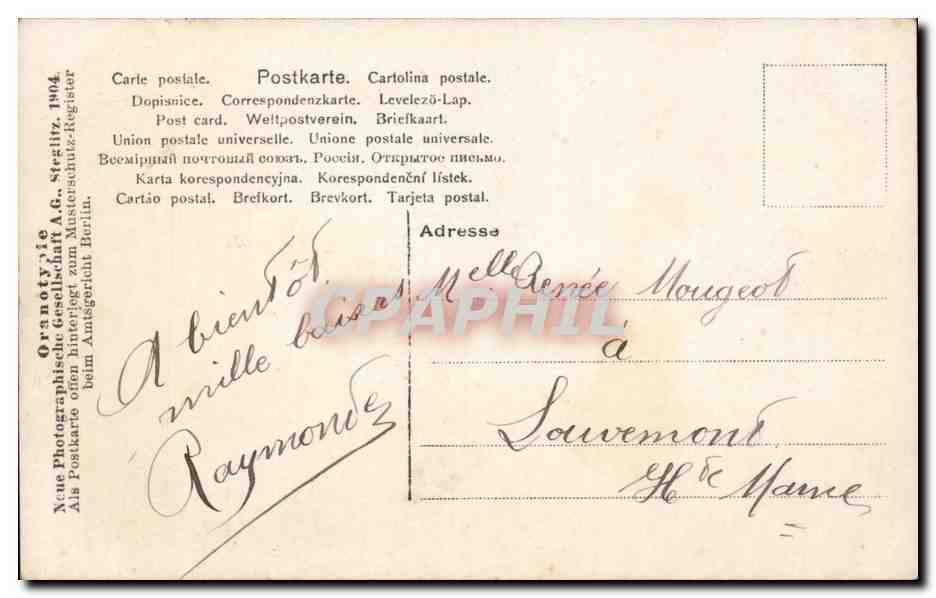 Carte postale. Postkarte. Cartolina postale.
Dopisnice. Correspondenzkarte. Levelező-Lap.
Post card. Weltpostverein. Briefkaart.
Union postale universelle. Unione postale universale.
Всемірный почтовый союзъ. Россія. Открытое письмо.
Karta korespondencyjna. Korespondenční lístek.
Cartão postal. Brefkort. Brevkort. Tarjeta postal.
Oranotypie
Neue Photographische Gesellschaft A.G., Steglitz. 1904.
Als Postkarte offen hinterlegt zum Musterschutz-Register
beim Amtsgericht Berlin.
A bientôt
mille baisers
Raymonde
Adresse
Melle Renée Mougeot
à
Louvemont
Hte Marne
CPAPHIL